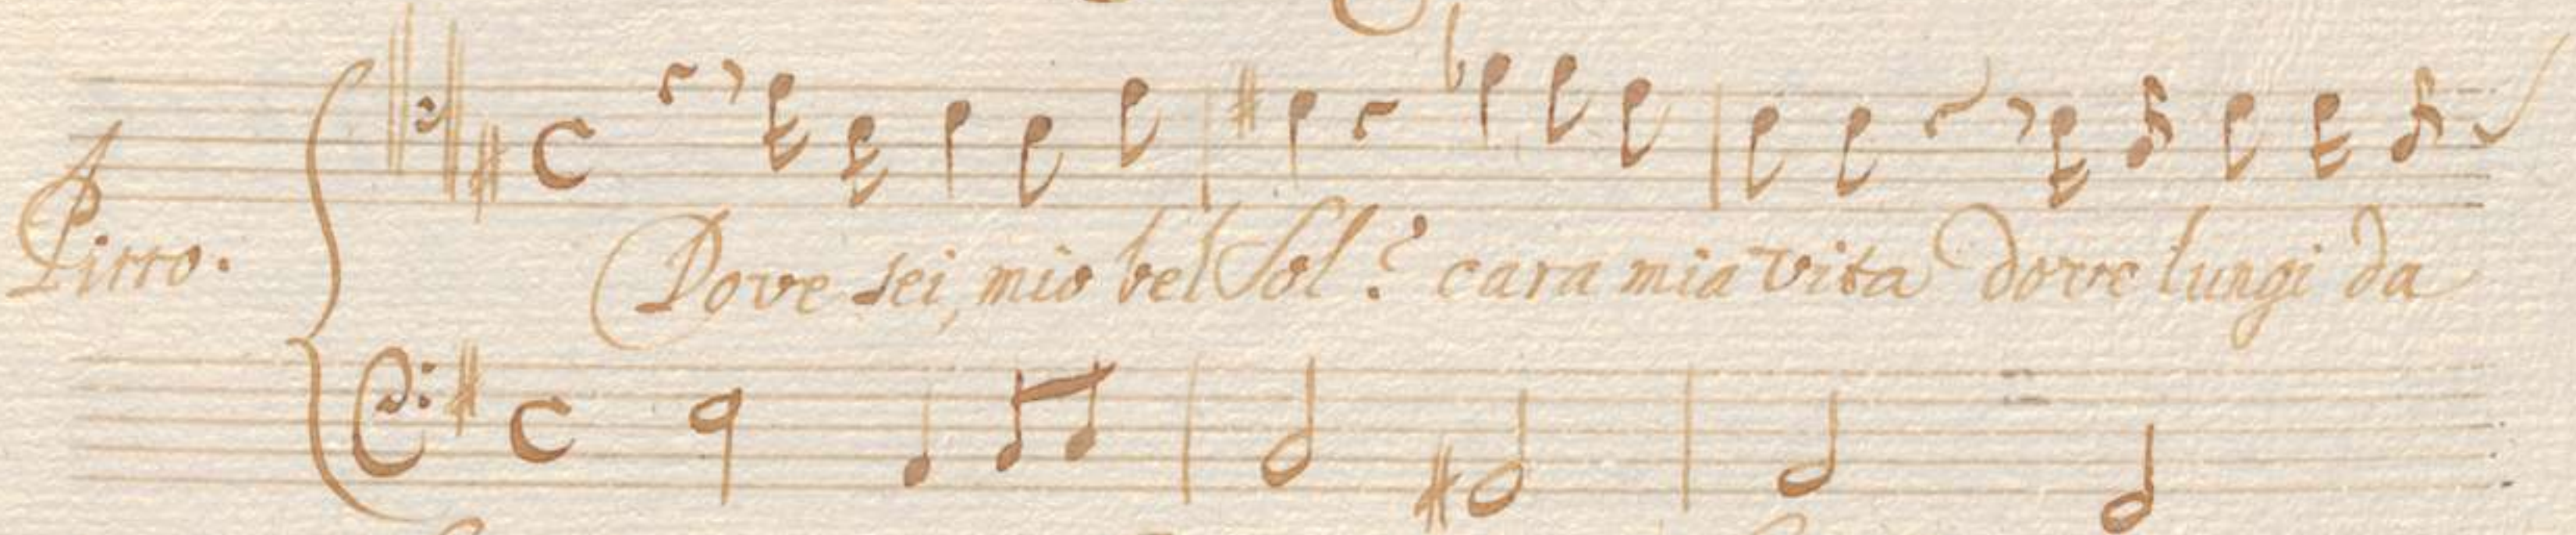 Pirro.
Dove sei, mio bel Sol? cara mia vita dove lungi da